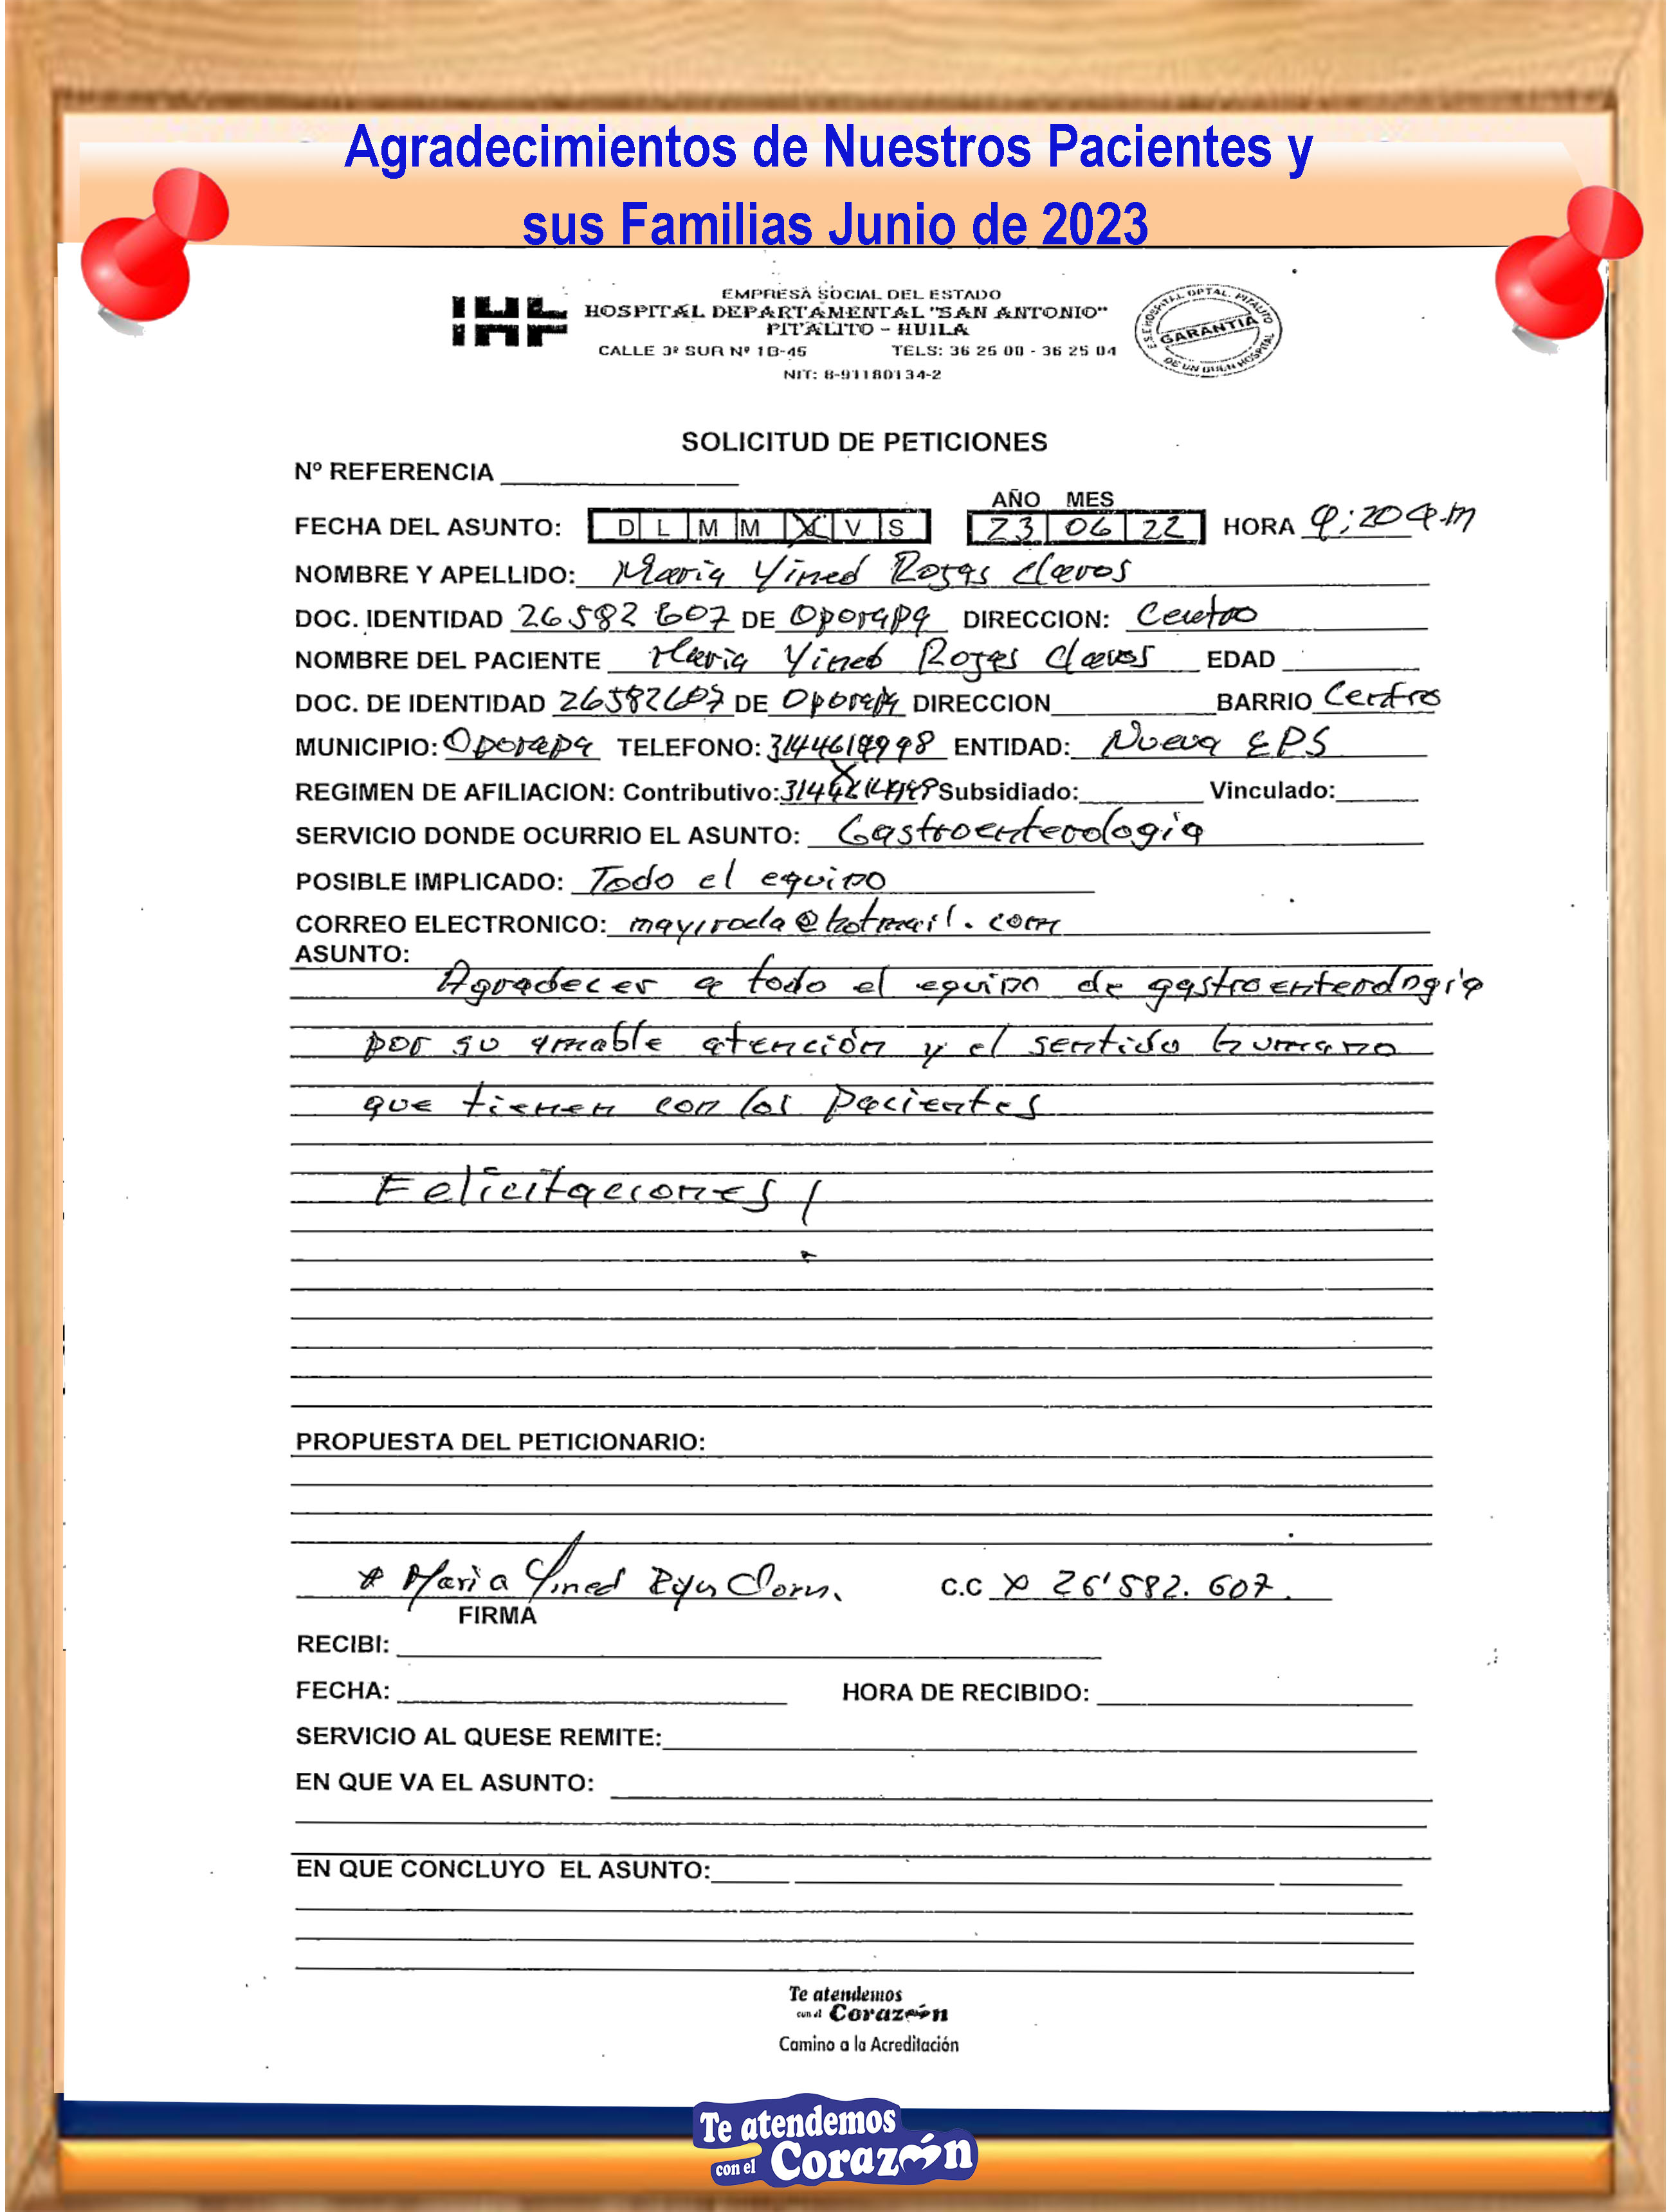 Agradecimientos de Nuestros Pacientes y
sus Familias Junio de 2023
EMPRESA SOCIAL DEL ESTADO
HOSPITAL DEPARTAMENTAL "SAN ANTONIO"
PITALITO - HUILA
CALLE 3ª SUR Nº 1B-45 TELS: 36 25 00 - 36 25 04
NIT: 8-91180134-2
E.S.E HOSPITAL DPTAL. PITALITO
GARANTIA
DE UN BUEN HOSPITAL
SOLICITUD DE PETICIONES
Nº REFERENCIA
AÑO MES
FECHA DEL ASUNTO: D L M M X V S 23 06 22 HORA 9:20 a.m
NOMBRE Y APELLIDO: Maria Yined Rojas Claros
DOC. IDENTIDAD 26582607 DE Oporapa DIRECCION: Centro
NOMBRE DEL PACIENTE Maria Yined Rojas Claros EDAD
DOC. DE IDENTIDAD 26582607 DE Oporapa DIRECCION BARRIO Centro
MUNICIPIO: Oporapa TELEFONO: ENTIDAD: Nueva EPS
REGIMEN DE AFILIACION: Contributivo: X Subsidiado: Vinculado:
SERVICIO DONDE OCURRIO EL ASUNTO: Gastroenterologia
POSIBLE IMPLICADO: Todo el equipo
CORREO ELECTRONICO: mayiroda@hotmail.com
ASUNTO:
Agradecer a todo el equipo de gastroenterologia
por su amable atención y el sentido humano
que tienen con los pacientes
Felicitaciones!
PROPUESTA DEL PETICIONARIO:
Maria Yined C.C X 26'582.607.
FIRMA
RECIBI:
FECHA: HORA DE RECIBIDO:
SERVICIO AL QUESE REMITE:
EN QUE VA EL ASUNTO:
EN QUE CONCLUYO EL ASUNTO:
Te atendemos
con el Corazón
Camino a la Acreditación
Te atendemos
con el Corazón